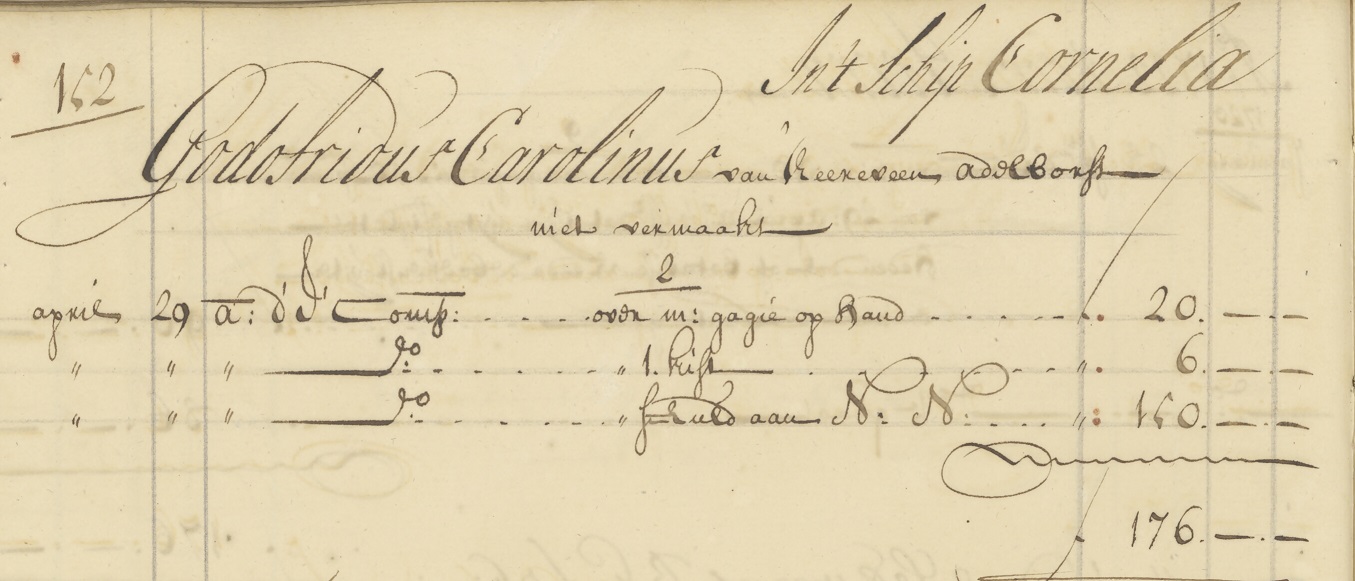 Int Schip Cornelia
152
Godofridus Carolinus van heereveen adelborst
niet vermaakt
april 29 a: d' E' Comp: . . . . over 2 m: gagie op Hand . . . . . 20. — . —
" " " do . . . . . " 1. kist . . . . . ". 6. — . —
" " " do . . . . . " schuld aan N: N: . . . . ": 150. — . —
176. — . —